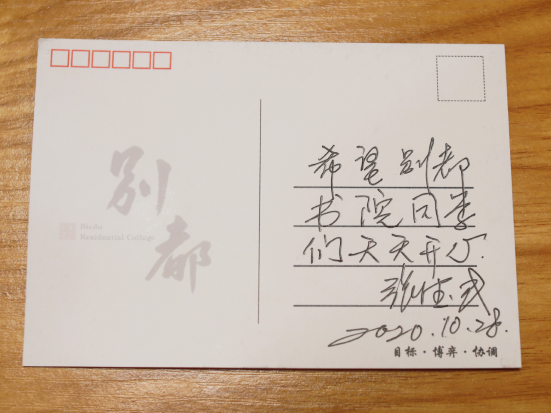 别
都
Residential College
希望别都
书院同学
们天天开心
2020.10.28.
目标·博弈·协调